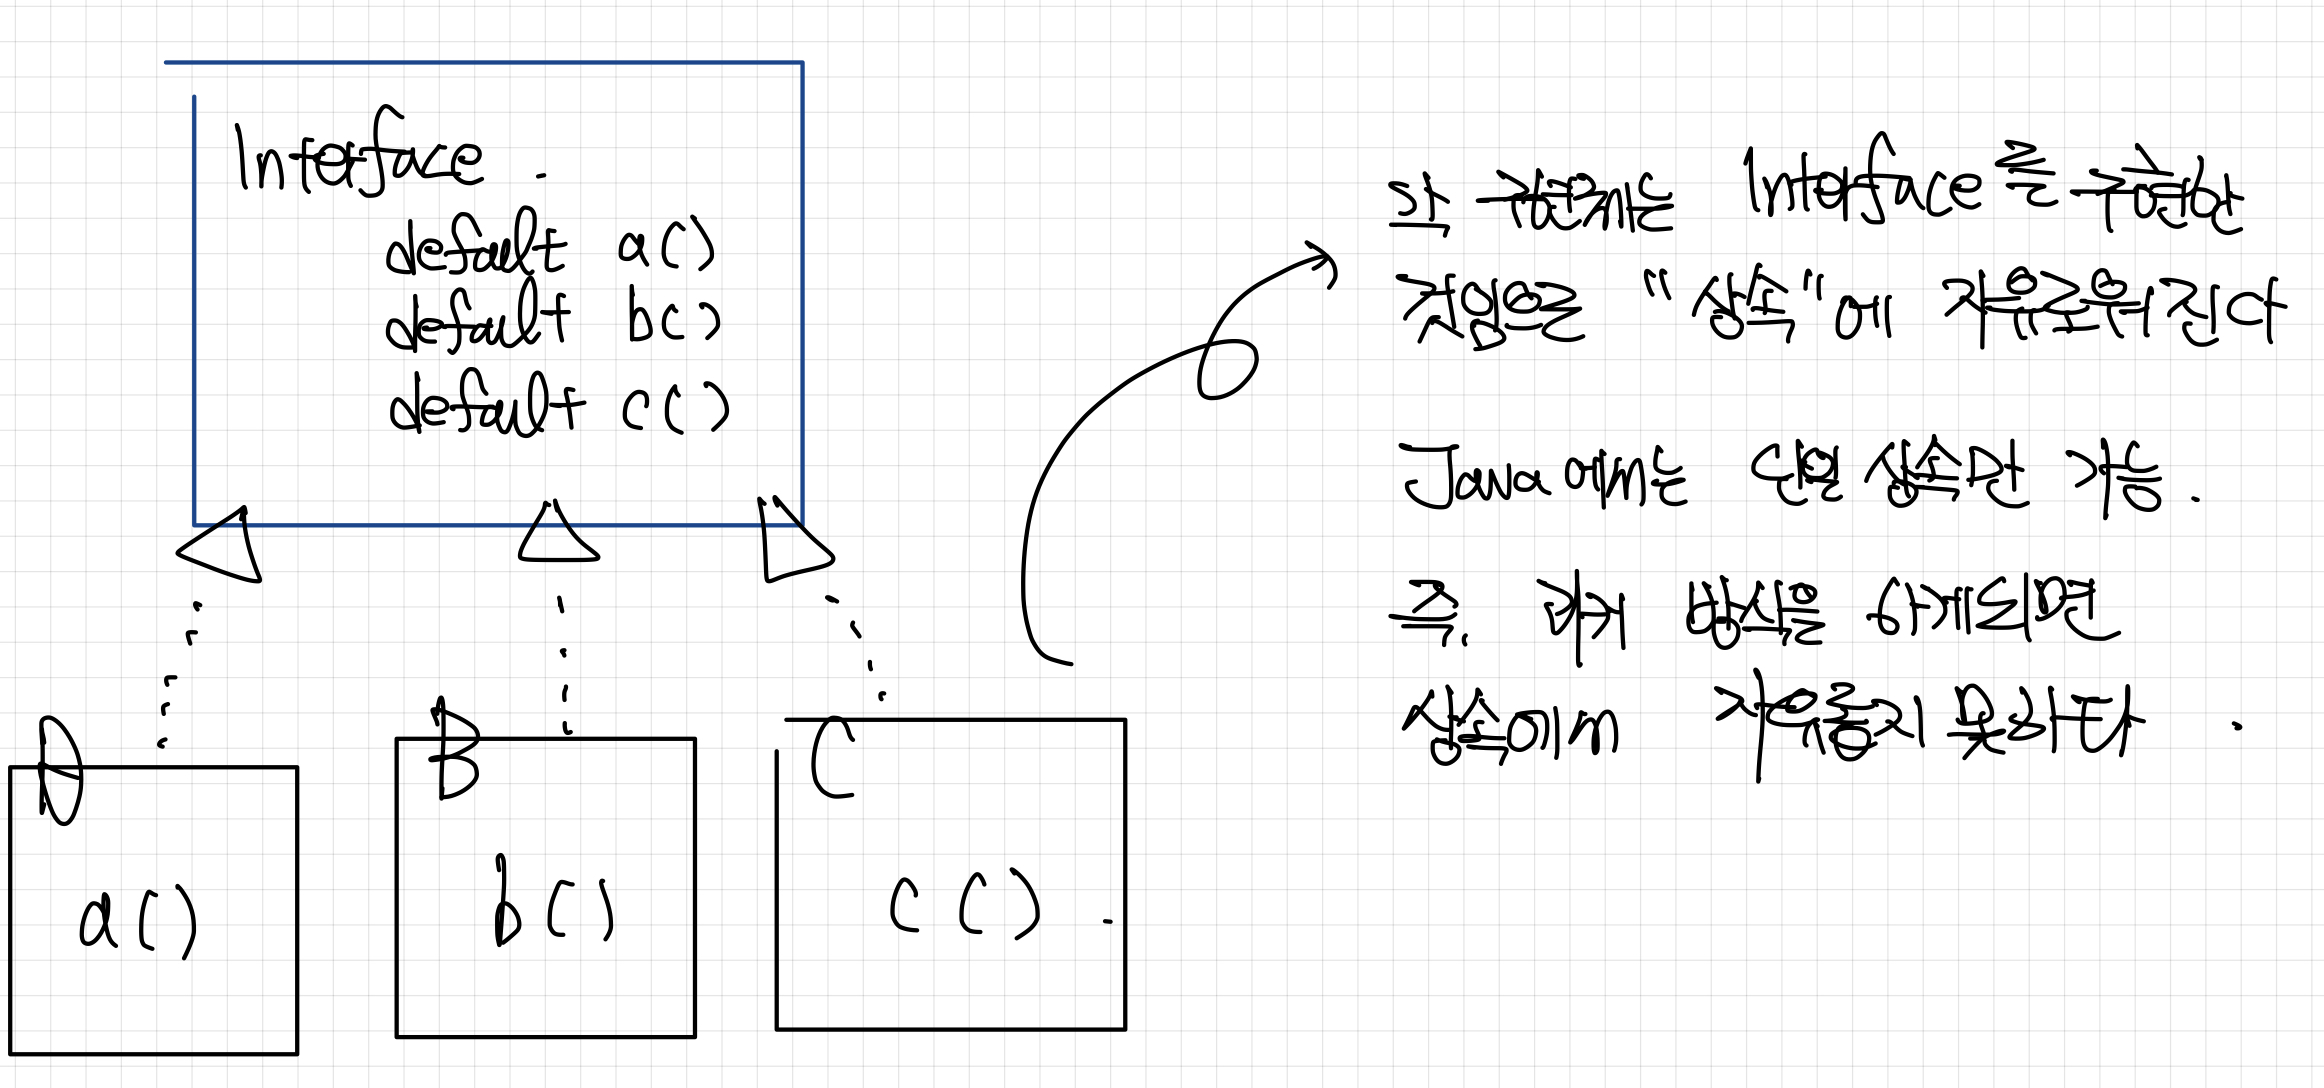 Interface.
default a()
default b()
default c()
A
a()
B
b()
C
c().
Interface를
"상속"에 자유로워진다
Java에서는 단일 상속만 가능.
즉, 과거 방식을
상속에서 자유롭지 못하다.